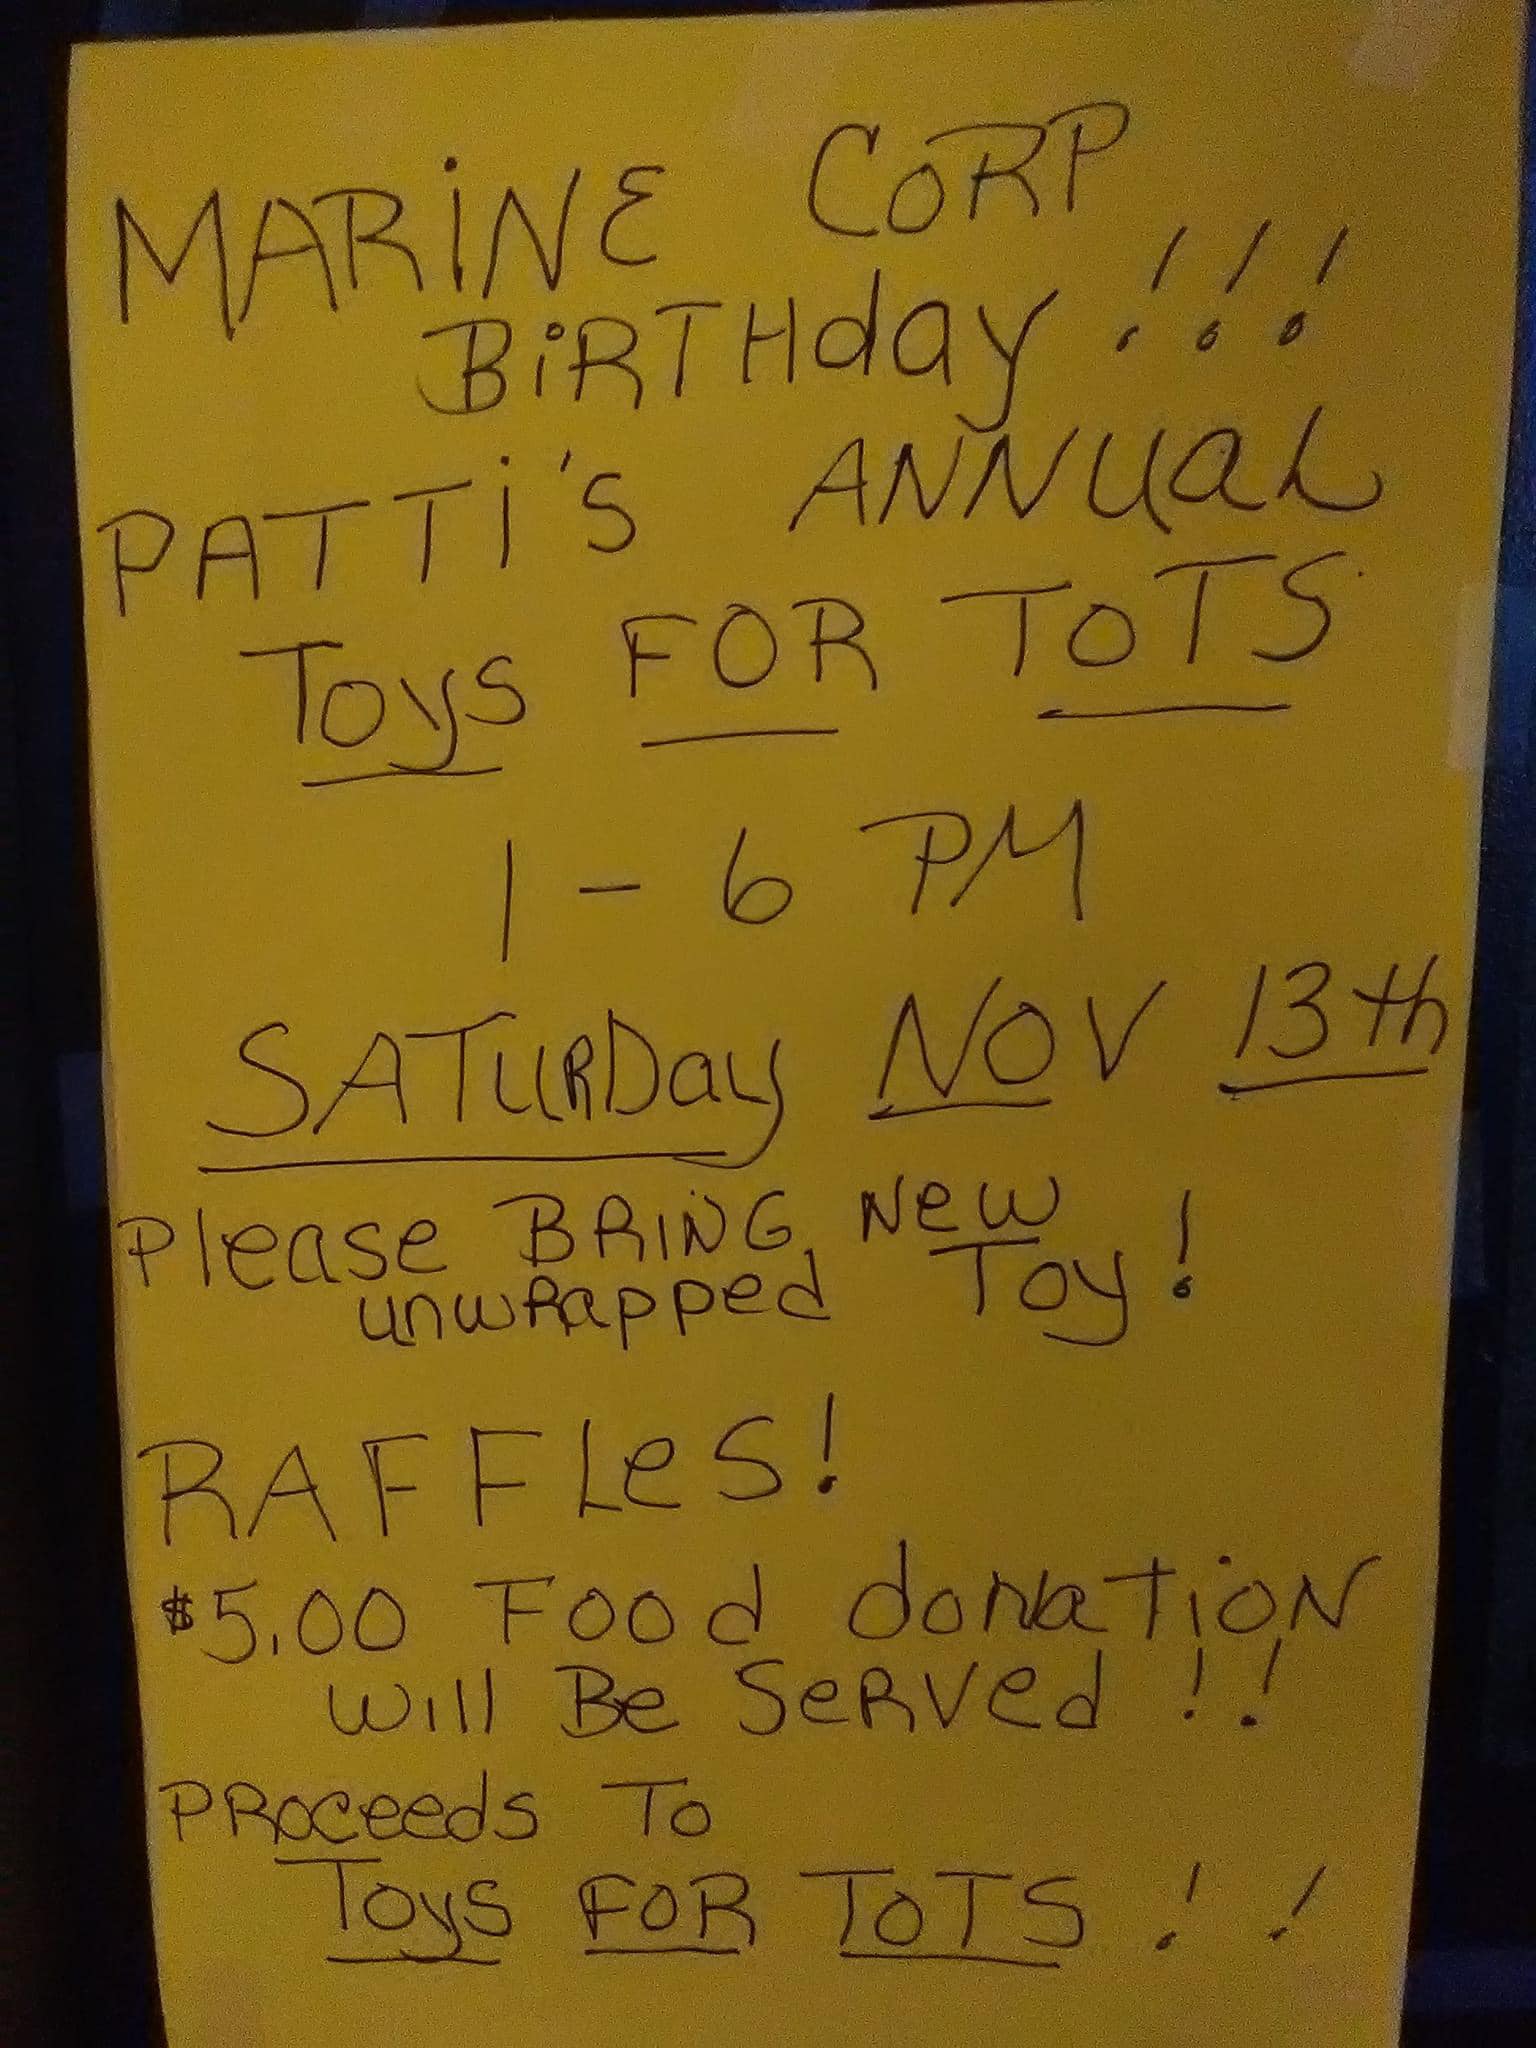 MARiNE CORP
BiRTHday!!!
PATTi's ANNUAL
Toys FOR ToTS
1 - 6 PM
SATURDay NOV 13th
Please BRiNG, New
unwRapped Toy!
RAFFLeS!
$5.00 Food donaTioN
will Be SeRVed!!
PROceeds To
Toys FOR ToTS!!